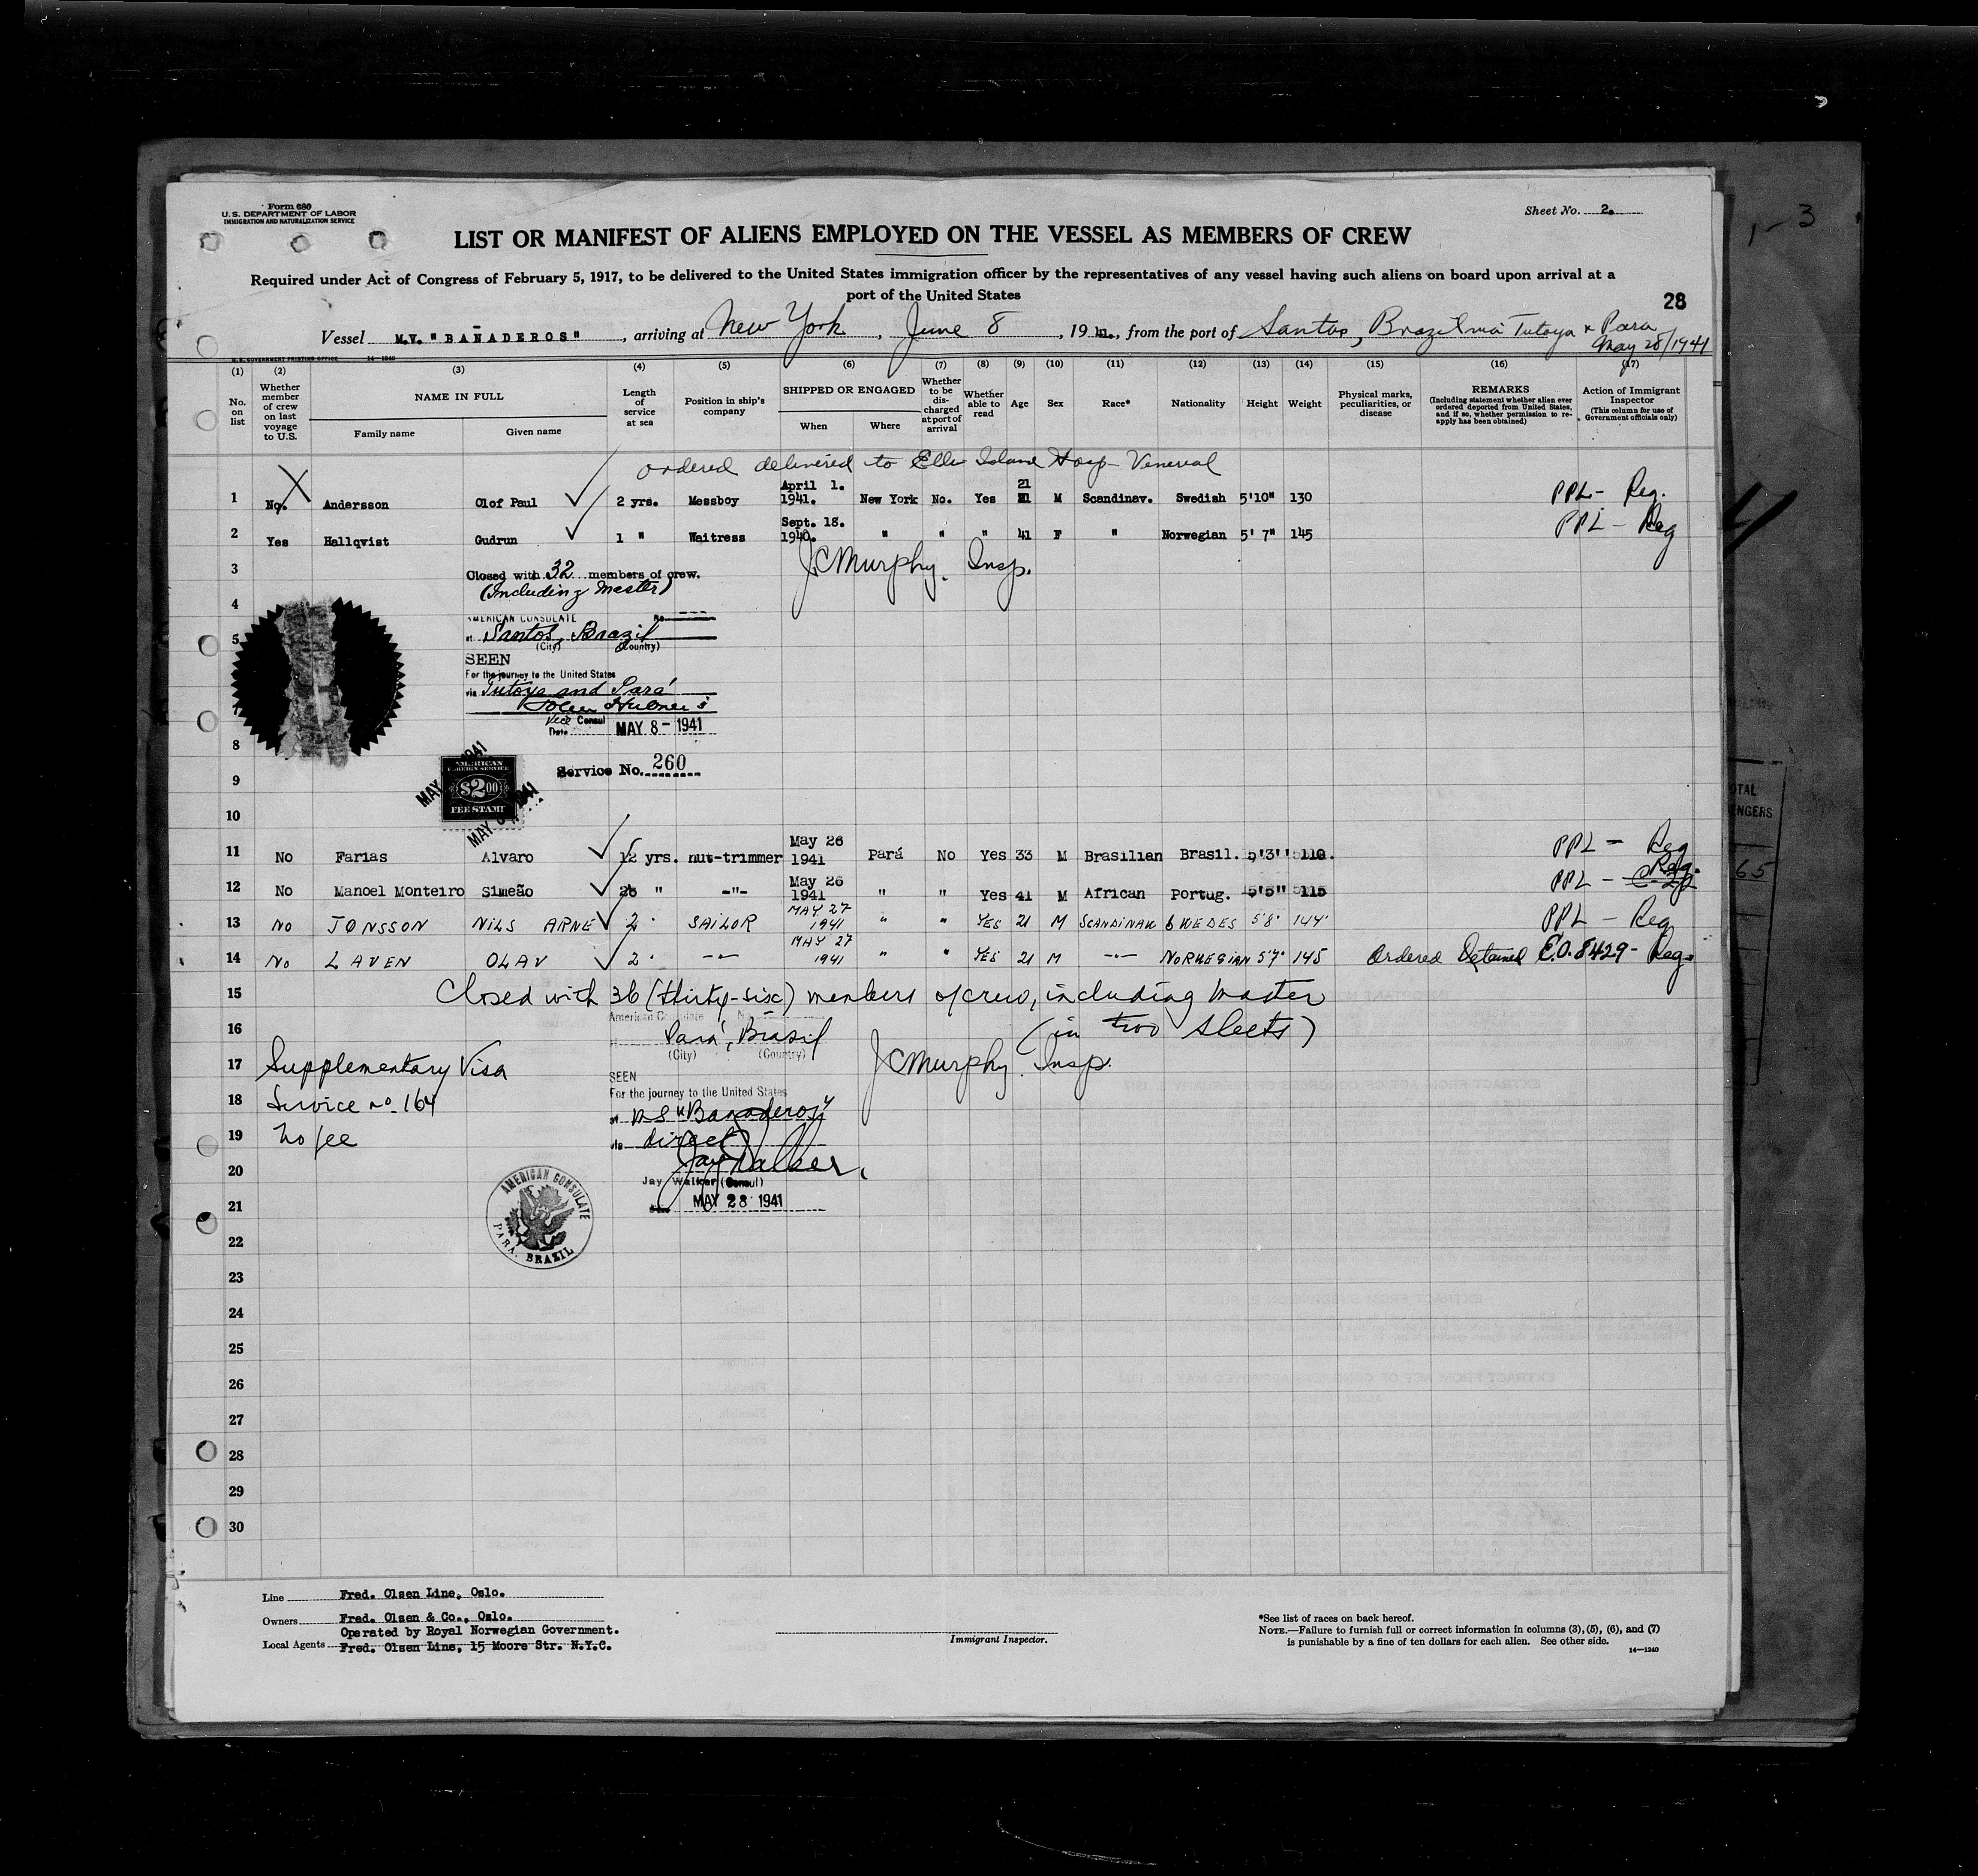 Form 680
U.S. DEPARTMENT OF LABOR
IMMIGRATION AND NATURALIZATION SERVICE
Sheet No. 2.
1-3
LIST OR MANIFEST OF ALIENS EMPLOYED ON THE VESSEL AS MEMBERS OF CREW
Required under Act of Congress of February 5, 1917, to be delivered to the United States immigration officer by the representatives of any vessel having such aliens on board upon arrival at a
port of the United States
28
Vessel M.V. "BAÑADEROS", arriving at New York, June 8, 1941., from the port of Santos, Brazil via Tutoya & Para
May 28/1941
U.S. GOVERNMENT PRINTING OFFICE 14-1240
(1) (2) (3) (4) (5) (6) (7) (8) (9) (10) (11) (12) (13) (14) (15) (16) (17)
No. on list
Whether member of crew on last voyage to U.S.
NAME IN FULL
Family name Given name
Length of service at sea
Position in ship's company
SHIPPED OR ENGAGED
When Where
Whether to be discharged at port of arrival
Whether able to read
Age
Sex
Race*
Nationality
Height
Weight
Physical marks, peculiarities, or disease
REMARKS
(Including statement whether alien ever ordered deported from United States, and if so, whether permission to reapply has been obtained)
Action of Immigrant Inspector
(This column for use of Government officials only)
ordered delivered to Ellis Island Hosp Venereal
1 No. Andersson Olof Paul 2 yrs. Messboy April 1. 1941. New York No. Yes 21 M Scandinav. Swedish 5'10" 130 PPL- Reg.
2 Yes Hallqvist Gudrun 1 " Waitress Sept. 18. 1940. " " " 41 F " Norwegian 5' 7" 145 PPL - Reg
3 Closed with 32 members of crew. JCMurphy. Insp.
(Including Master)
4
AMERICAN CONSULATE No.
5 at Santos, Brazil
(City) (Country)
SEEN
For the journey to the United States
via Tutoya and Pará
7
Vice Consul
Date MAY 8 - 1941
8
Service No. 260
AMERICAN
FOREIGN SERVICE
$2.00
FEE STAMP
MAY 1941
9
10
11 No Farias Alvaro 12 yrs. nut-trimmer May 26 1941 Pará No Yes 33 M Brasilian Brasil. 5'3" 110. PPL - Reg
12 No Manoel Monteiro Simeão 26 " -"- May 26 1941 " " Yes 41 M African Portug. 5'5" 115 PPL - Reg.
13 NO JONSSON NILS ARNE 2 " SAILOR MAY 27 1941 " " YES 21 M SCANDINAV SWEDES 5'8" 144 PPL - Reg
14 No LAVEN OLAV 2 " -"- MAY 27 1941 " " YES 21 M -"- NORWEGIAN 5'7" 145 Ordered Detained E.O. 8429 - Reg.
15 Closed with 36 (thirty-six) members of crew, including Master
American Consulate No.
16 Pará, Brasil (in two sheets)
(City) (Country)
17 Supplementary Visa JCMurphy. Insp.
SEEN
18 Service No. 164
For the journey to the United States
on "Banaderos"
19 No fee
via direct
Jay Walker
20
Jay Walker (Consul)
21 MAY 28 1941
AMERICAN CONSULATE
PARA, BRAZIL
22
23
24
25
26
27
28
29
30
Line Fred. Olsen Line, Oslo.
Owners Fred. Olsen & Co., Oslo.
Operated by Royal Norwegian Government.
Local Agents Fred. Olsen Line, 15 Moore Str. N.Y.C.
Immigrant Inspector.
*See list of races on back hereof.
NOTE.—Failure to furnish full or correct information in columns (3), (5), (6), and (7)
is punishable by a fine of ten dollars for each alien. See other side.
14-1240